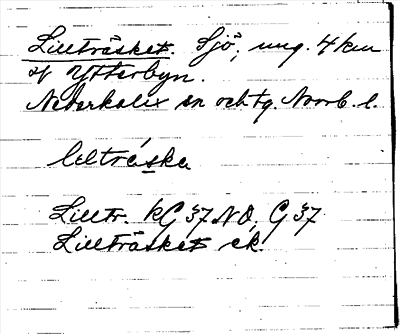 Lillträsket. Sjö, ung. 4 km
Ytterbyn.
Nederkalix sn och tg. Norrb. l.
lìlträ́ska
Lilltr. KG 37 NO, G 37
Lillträsket ek.